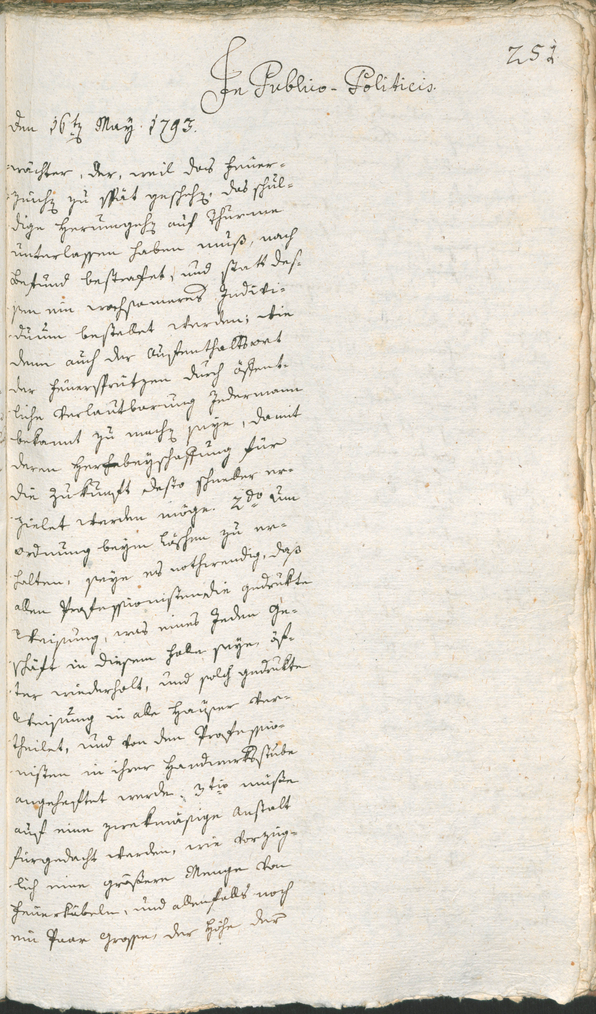 251
In Publico-Politicis.
den 16t May. 1793.
wächter, der, weil das Feuer-
zeichen zu spät geschehen, das schul-
dige Herumgehen auf Thurme
unterlassen haben muß, nach
Befund bestrafet, und statt des-
sen ein wachsameres Indivi-
duum bestellet werden; wie
denn auch der Aufenthaltsort
der Feuersprützen durch öffent-
liche Verlautbarung Jedermann
bekannt zu machen seye, damit
deren Herbeyschaffung für
die Zukunft desto schneller er-
zielet werden möge. 2do um
ordnung beym Löschen zu er-
halten, seye es nothwendig, daß
allen Professionisten die gedrukte
Weisung, was eines Jeden Ge-
schäft in diesem Falle seye, öf-
ter wiederholt, und solch gedrukte
Weisung in alle Häuser ver-
theilet, und von den Professio-
nisten in ihrer Handwerksstube
angeheftet werde. 3tio müßte
auf eine zwekmäsige Anstalt
fürgedacht werden, wie vorzüg-
lich eine größere Menge von
Feuerkübeln, und allenfalls noch
ein Paar Grosse, der Höhe der